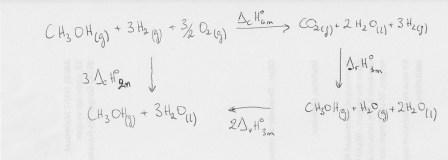 CH3OH(g) + 3H2(g) + 3/2 O2(g) ΔcH°1m → CO2(g) + 2H2O(l) + 3H2(g)
3ΔcH°2m ↓ ↓ ΔrH°3m
CH3OH(g) + 3H2O(l) ← 2ΔvH°3m CH3OH(g) + H2O(g) + 2H2O(l)